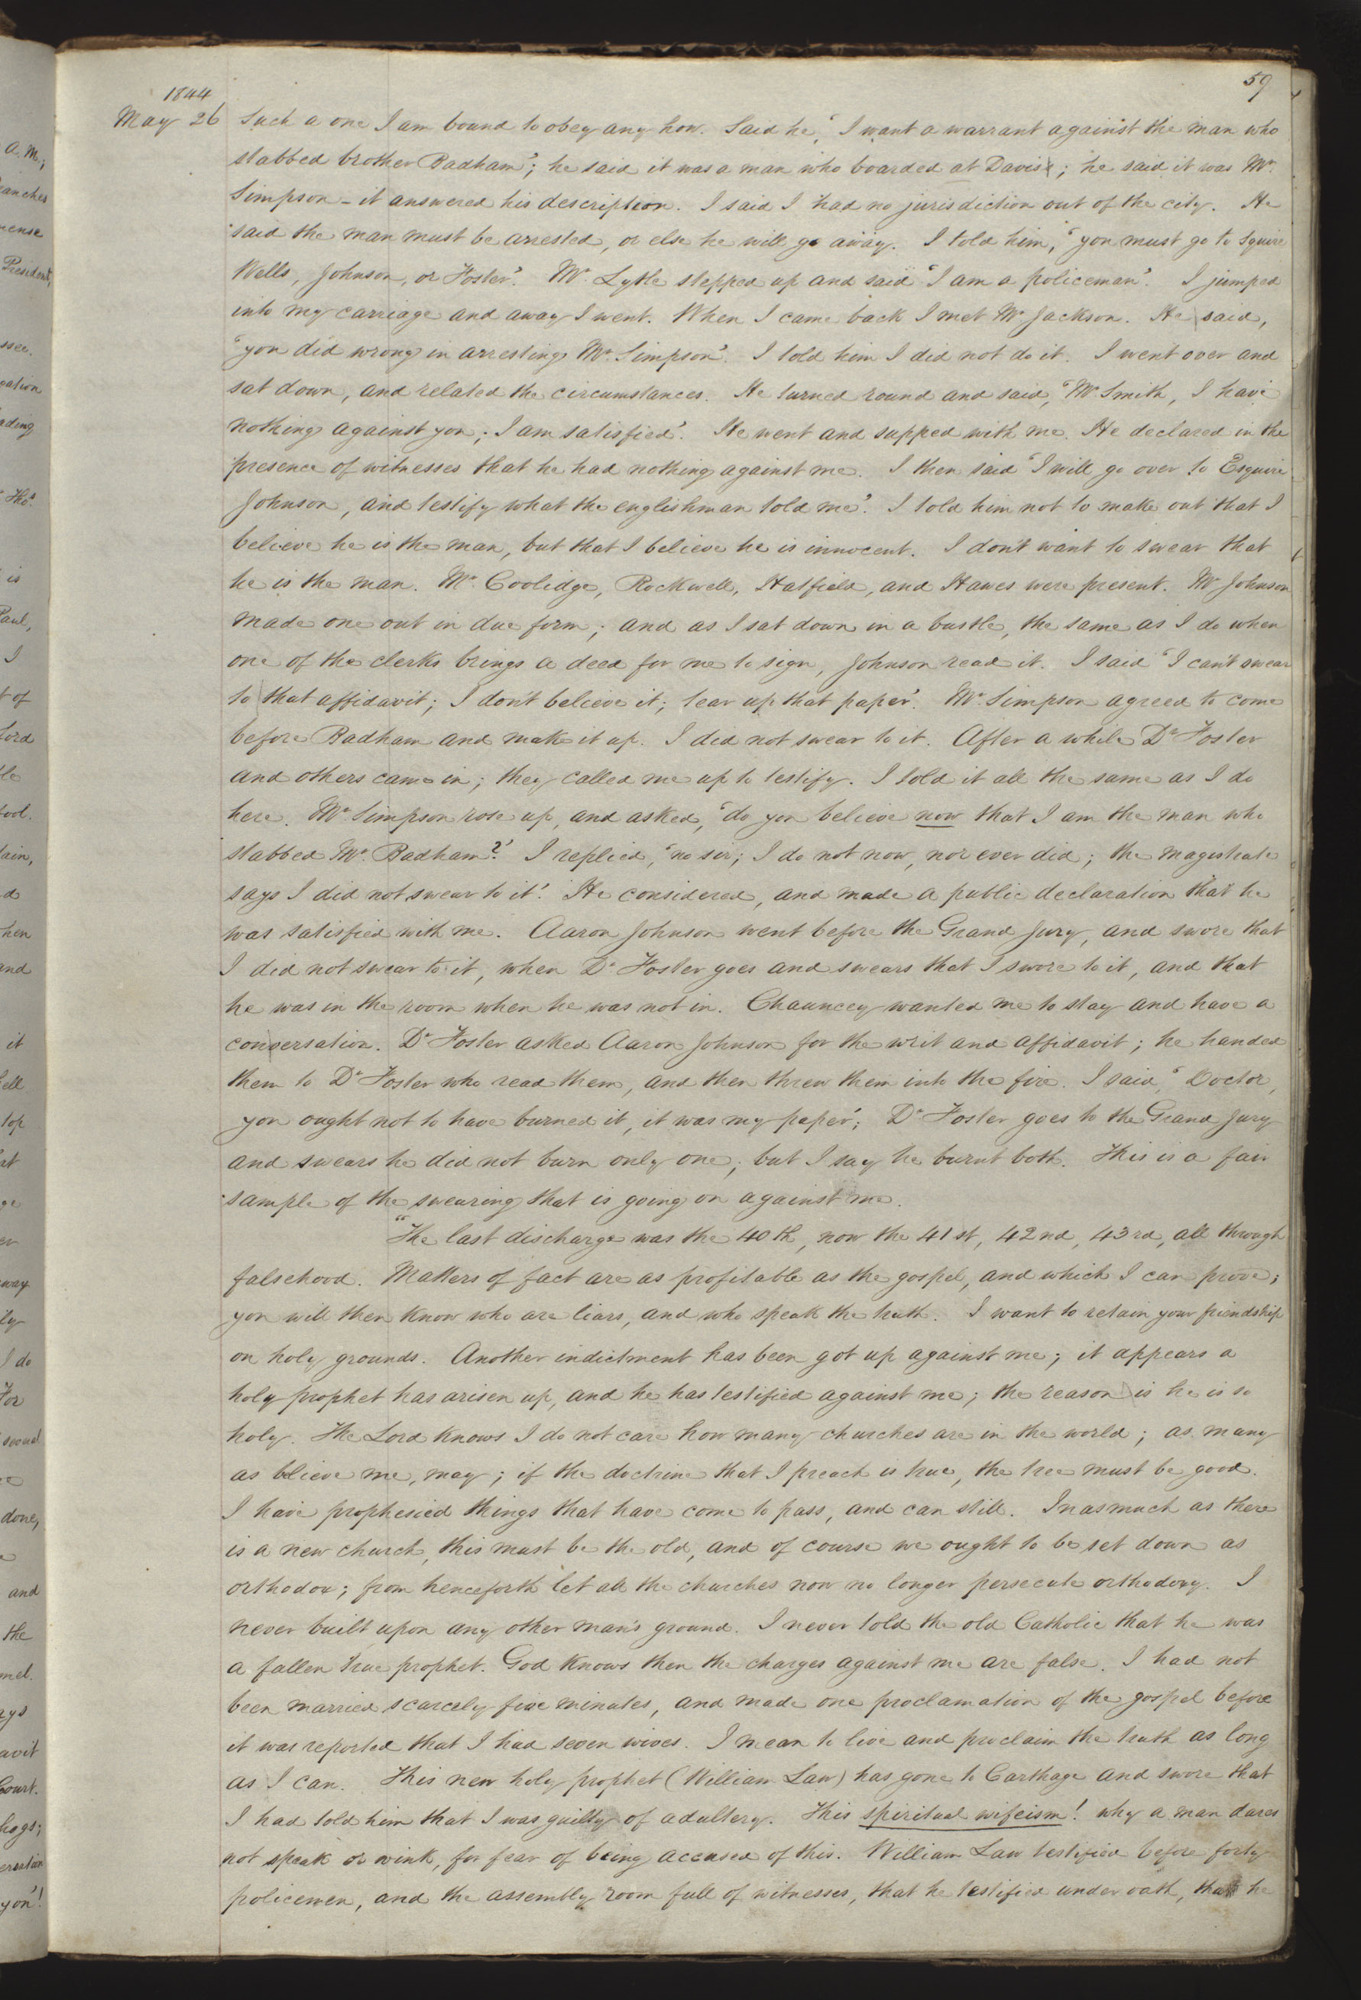 59
1844
May 26 Such a one I am bound to obey any how. Said he, "I want a warrant against the man who
stabbed brother Badham"; he said it was a man who boarded at Davis; he said it was Mr.
Simpson – it answered his description. I said I had no jurisdiction out of the city. He
said the man must be arrested, or else he will go away. I told him, "you must go to Squire
Wells, Johnson, or Foster". Mr. Lytle stepped up and said "I am a policeman". I jumped
into my carriage and away I went. When I came back I met Mr. Jackson. He said,
"you did wrong in arresting Mr. Simpson". I told him I did not do it. I went over and
sat down, and related the circumstances. He turned round and said, "Mr. Smith, I have
nothing against you; I am satisfied". He went and supped with me. He declared in the
presence of witnesses that he had nothing against me. I then said "I will go over to Esquire
Johnson, and testify what the englishman told me". I told him not to make out that I
believe he is the man, but that I believe he is innocent. I don't want to swear that
he is the man. Mr. Coolidge, Rockwell, Hatfield, and Hawes were present. Mr. Johnson
made one out in due form; and as I sat down in a bustle, the same as I do when
one of the clerks brings a deed for me to sign, Johnson read it. I said "I can't swear
to that affidavit; I don't believe it; tear up that paper". Mr. Simpson agreed to come
before Badham and make it up. I did not swear to it. After a while Dr. Foster
and others came in; they called me up to testify. I told it all the same as I do
here. Mr. Simpson rose up, and asked, "do you believe now that I am the man who
stabbed Mr. Badham?" I replied, "no sir; I do not now, nor ever did; the magistrate
says I did not swear to it". He considered, and made a public declaration that he
was satisfied with me. Aaron Johnson went before the Grand Jury, and swore that
I did not swear to it, when Dr. Foster goes and swears that I swore to it, and that
he was in the room when he was not in. Chauncey wanted me to stay and have a
conversation. Dr. Foster asked Aaron Johnson for the writ and affidavit; he handed
them to Dr. Foster who read them, and then threw them into the fire. I said, "Doctor,
you ought not to have burned it, it was my paper"; Dr. Foster goes to the Grand Jury
and swears he did not burn only one; but I say he burnt both. This is a fair
sample of the swearing that is going on against me.
"The last discharge was the 40th, now the 41st, 42nd, 43rd, all through
falsehood. Matters of fact are as profitable as the gospel, and which I can prove;
you will then know who are liars, and who speak the truth. I want to retain your friendship
on holy grounds. Another indictment has been got up against me; it appears a
holy prophet has arisen up, and he has testified against me; the reason is he is so
holy. The Lord knows I do not care how many churches are in the world; as many
as believe me, may; if the doctrine that I preach is true, the tree must be good.
I have prophesied things that have come to pass, and can still. Inasmuch as there
is a new church, this must be the old, and of course we ought to be set down as
orthodox; from henceforth let all the churches now no longer persecute orthodoxy. I
never built upon any other man's ground. I never told the old Catholic that he was
a fallen true prophet. God knows then the charges against me are false. I had not
been married scarcely five minutes, and made one proclamation of the gospel before
it was reported that I had seven wives. I mean to live and proclaim the truth as long
as I can. This new holy prophet (William Law) has gone to Carthage and swore that
I had told him that I was guilty of adultery. This spiritual wifeism! why a man dares
not speak or wink, for fear of being accused of this. William Law testified before forty
policemen, and the assembly room full of witnesses, that he testified under oath, that he